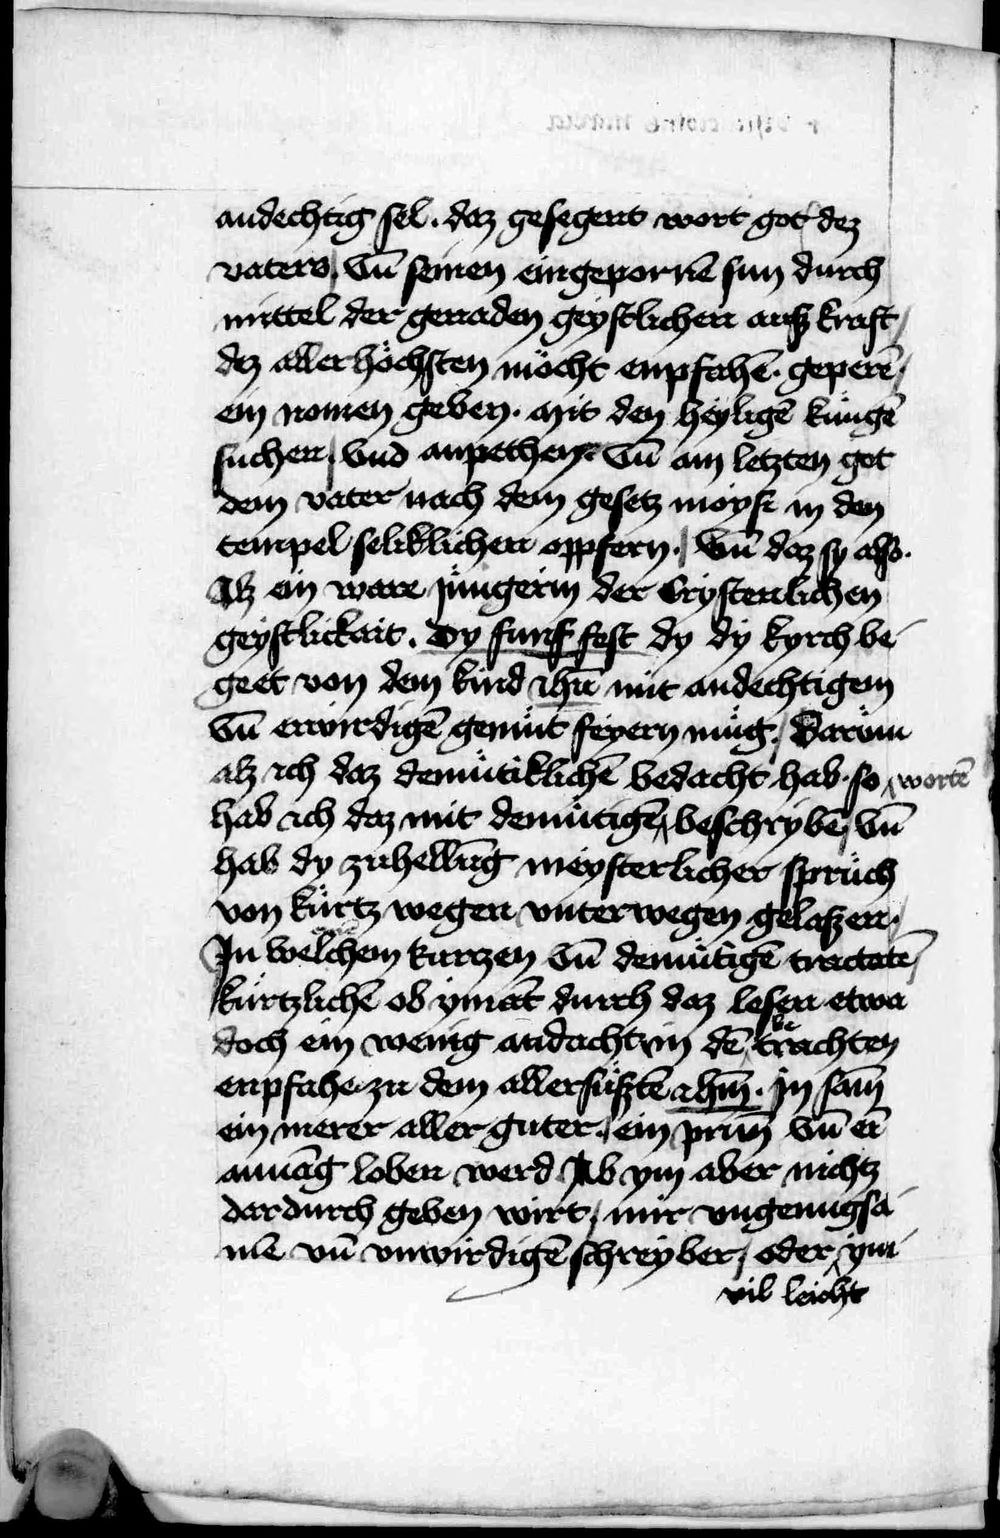 andechtig sel. daz gesegent wort got dez
vaters. vn̄ seinen eingepornē sun durch
mittel der genaden geystlichen ausz kraft
dez aller höchsten möcht enpfahē. geperē.
ein nomen geben. mit den heyligē künigē
suchen / vnd anpethen. vn̄ am letzten got
dem vater nach dem gesetz moysi in den
tempel seliklichen oppfern. / vn̄ daz sy also.
Alz ein ware jüngerin der Cristenlichen
geystlickait. Dy funf fest dy dy kyrch be
geet von dem kind ihū mit andechtigem
vn̄ erwirdigē gemüt feyern müg. / Darum
alz ich daz demütiklichē bedacht hab. so
hab ich daz mit demütigē wortē beschrybē / vn̄
hab dy zuhellūg meysterlicher sprüch
von kürtz wegen vnterwegen gelaszen.
In welchem kurczen vn̄ demütigē tractatē /
kürtzlichē ob ymāt durch daz lesen etwa
doch ein wenig andacht in dē betrachten
enpfahe zu dem allersüsztē ihm̄. In sām
ein merer aller guter. / ein prūn vn̄ er
anuāg loben werd Ab ym aber nichtz
dardurch geben wirt / mir vngenugsa
mē vn̄ vnwirdigē schreyber / oder ym
vil leicht